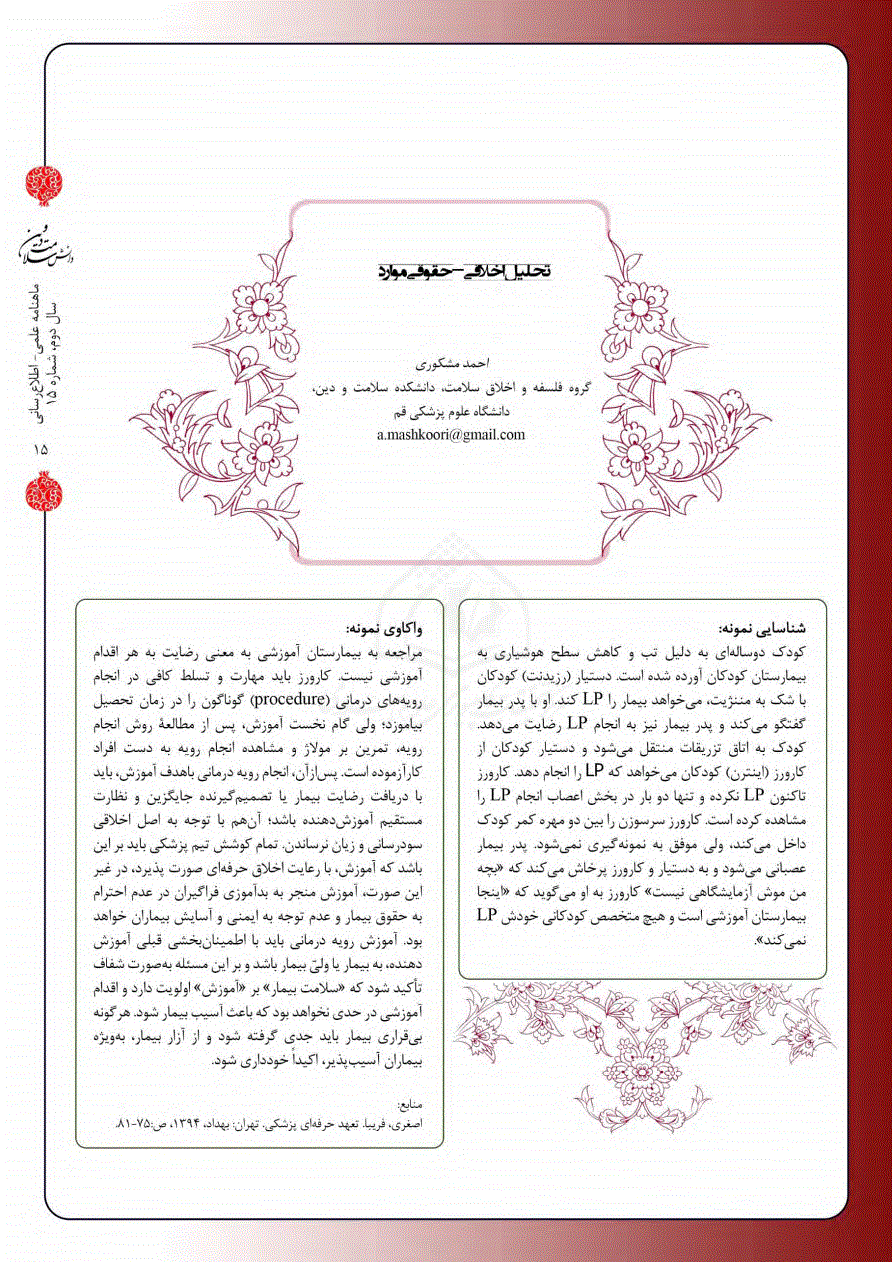 تحلیل اخلاقی-حقوقی موارد
احمد مشکوری
گروه فلسفه و اخلاق سلامت، دانشکده سلامت و دین،
دانشگاه علوم پزشکی قم
a.mashkoori@gmail.com
دانش سلامت و دین
ماهنامه علمی - اطلاع‌رسانی
سال دوم، شماره ۱۵
۱۵
شناسایی نمونه:
کودک دوساله‌ای به دلیل تب و کاهش سطح هوشیاری به
بیمارستان کودکان آورده شده است. دستیار (رزیدنت) کودکان
با شک به مننژیت، می‌خواهد بیمار را LP کند. او با پدر بیمار
گفتگو می‌کند و پدر بیمار نیز به انجام LP رضایت می‌دهد.
کودک به اتاق تزریقات منتقل می‌شود و دستیار کودکان از
کارورز (اینترن) کودکان می‌خواهد که LP را انجام دهد. کارورز
تاکنون LP نکرده و تنها دو بار در بخش اعصاب انجام LP را
مشاهده کرده است. کارورز سرسوزن را بین دو مهره کمر کودک
داخل می‌کند، ولی موفق به نمونه‌گیری نمی‌شود. پدر بیمار
عصبانی می‌شود و به دستیار و کارورز پرخاش می‌کند که «بچه
من موش آزمایشگاهی نیست» کارورز به او می‌گوید که «اینجا
بیمارستان آموزشی است و هیچ متخصص کودکانی خودش LP
نمی‌کند».
واکاوی نمونه:
مراجعه به بیمارستان آموزشی به معنی رضایت به هر اقدام
آموزشی نیست. کارورز باید مهارت و تسلط کافی در انجام
رویه‌های درمانی (procedure) گوناگون را در زمان تحصیل
بیاموزد؛ ولی گام نخست آموزش، پس از مطالعهٔ روش انجام
رویه، تمرین بر مولاژ و مشاهده انجام رویه به دست افراد
کارآزموده است. پس‌ازآن، انجام رویه درمانی باهدف آموزش، باید
با دریافت رضایت بیمار یا تصمیم‌گیرنده جایگزین و نظارت
مستقیم آموزش‌دهنده باشد؛ آن‌هم با توجه به اصل اخلاقی
سودرسانی و زیان نرساندن. تمام کوشش تیم پزشکی باید بر این
باشد که آموزش، با رعایت اخلاق حرفه‌ای صورت پذیرد، در غیر
این صورت، آموزش منجر به بدآموزی فراگیران در عدم احترام
به حقوق بیمار و عدم توجه به ایمنی و آسایش بیماران خواهد
بود. آموزش رویه درمانی باید با اطمینان‌بخشی قبلی آموزش
دهنده، به بیمار یا ولیّ بیمار باشد و بر این مسئله به‌صورت شفاف
تأکید شود که «سلامت بیمار» بر «آموزش» اولویت دارد و اقدام
آموزشی در حدی نخواهد بود که باعث آسیب بیمار شود. هرگونه
بی‌قراری بیمار باید جدی گرفته شود و از آزار بیمار، به‌ویژه
بیماران آسیب‌پذیر، اکیداً خودداری شود.
منابع:
اصغری، فریبا. تعهد حرفه‌ای پزشکی. تهران: بهداد، ۱۳۹۴، ص:۷۵-۸۱.